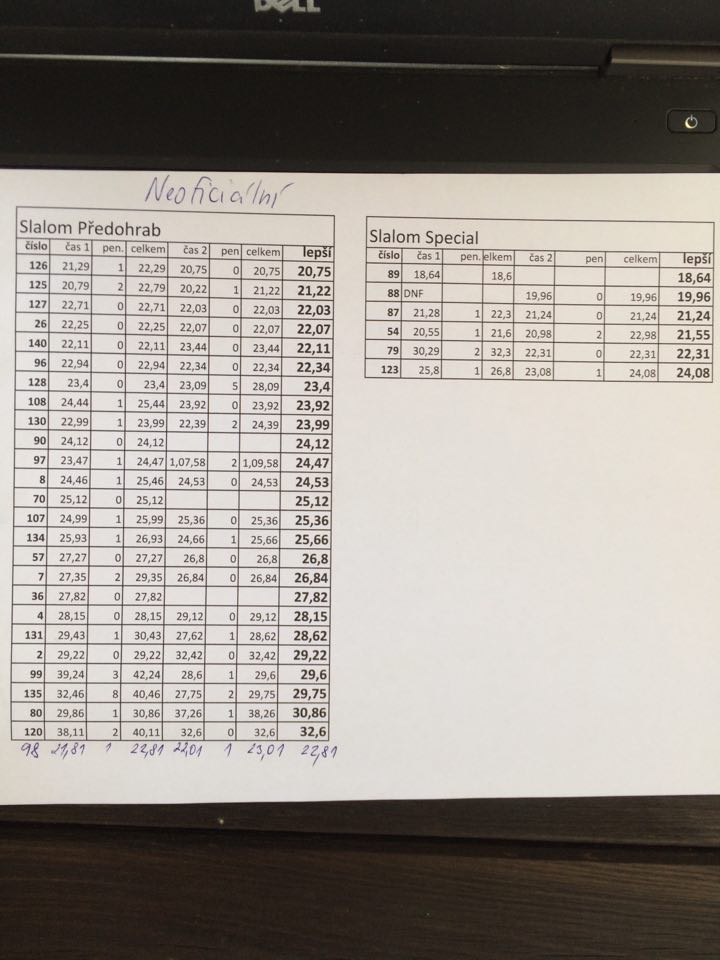 DELL
Neoficiální
Slalom Předohrab
číslo čas 1 pen. celkem čas 2 pen celkem lepší
126 21,29 1 22,29 20,75 0 20,75 20,75
125 20,79 2 22,79 20,22 1 21,22 21,22
127 22,71 0 22,71 22,03 0 22,03 22,03
26 22,25 0 22,25 22,07 0 22,07 22,07
140 22,11 0 22,11 23,44 0 23,44 22,11
96 22,94 0 22,94 22,34 0 22,34 22,34
128 23,4 0 23,4 23,09 5 28,09 23,4
108 24,44 1 25,44 23,92 0 23,92 23,92
130 22,99 1 23,99 22,39 2 24,39 23,99
90 24,12 0 24,12 24,12
97 23,47 1 24,47 1,07,58 2 1,09,58 24,47
8 24,46 1 25,46 24,53 0 24,53 24,53
70 25,12 0 25,12 25,12
107 24,99 1 25,99 25,36 0 25,36 25,36
134 25,93 1 26,93 24,66 1 25,66 25,66
57 27,27 0 27,27 26,8 0 26,8 26,8
7 27,35 2 29,35 26,84 0 26,84 26,84
36 27,82 0 27,82 27,82
4 28,15 0 28,15 29,12 0 29,12 28,15
131 29,43 1 30,43 27,62 1 28,62 28,62
2 29,22 0 29,22 32,42 0 32,42 29,22
99 39,24 3 42,24 28,6 1 29,6 29,6
135 32,46 8 40,46 27,75 2 29,75 29,75
80 29,86 1 30,86 37,26 1 38,26 30,86
120 38,11 2 40,11 32,6 0 32,6 32,6
98 21,81 1 22,81 22,01 1 23,01 22,81
Slalom Special
číslo čas 1 pen. elkem čas 2 pen celkem lepší
89 18,64 18,6 18,64
88 DNF 19,96 0 19,96 19,96
87 21,28 1 22,3 21,24 0 21,24 21,24
54 20,55 1 21,6 20,98 2 22,98 21,55
79 30,29 2 32,3 22,31 0 22,31 22,31
123 25,8 1 26,8 23,08 1 24,08 24,08